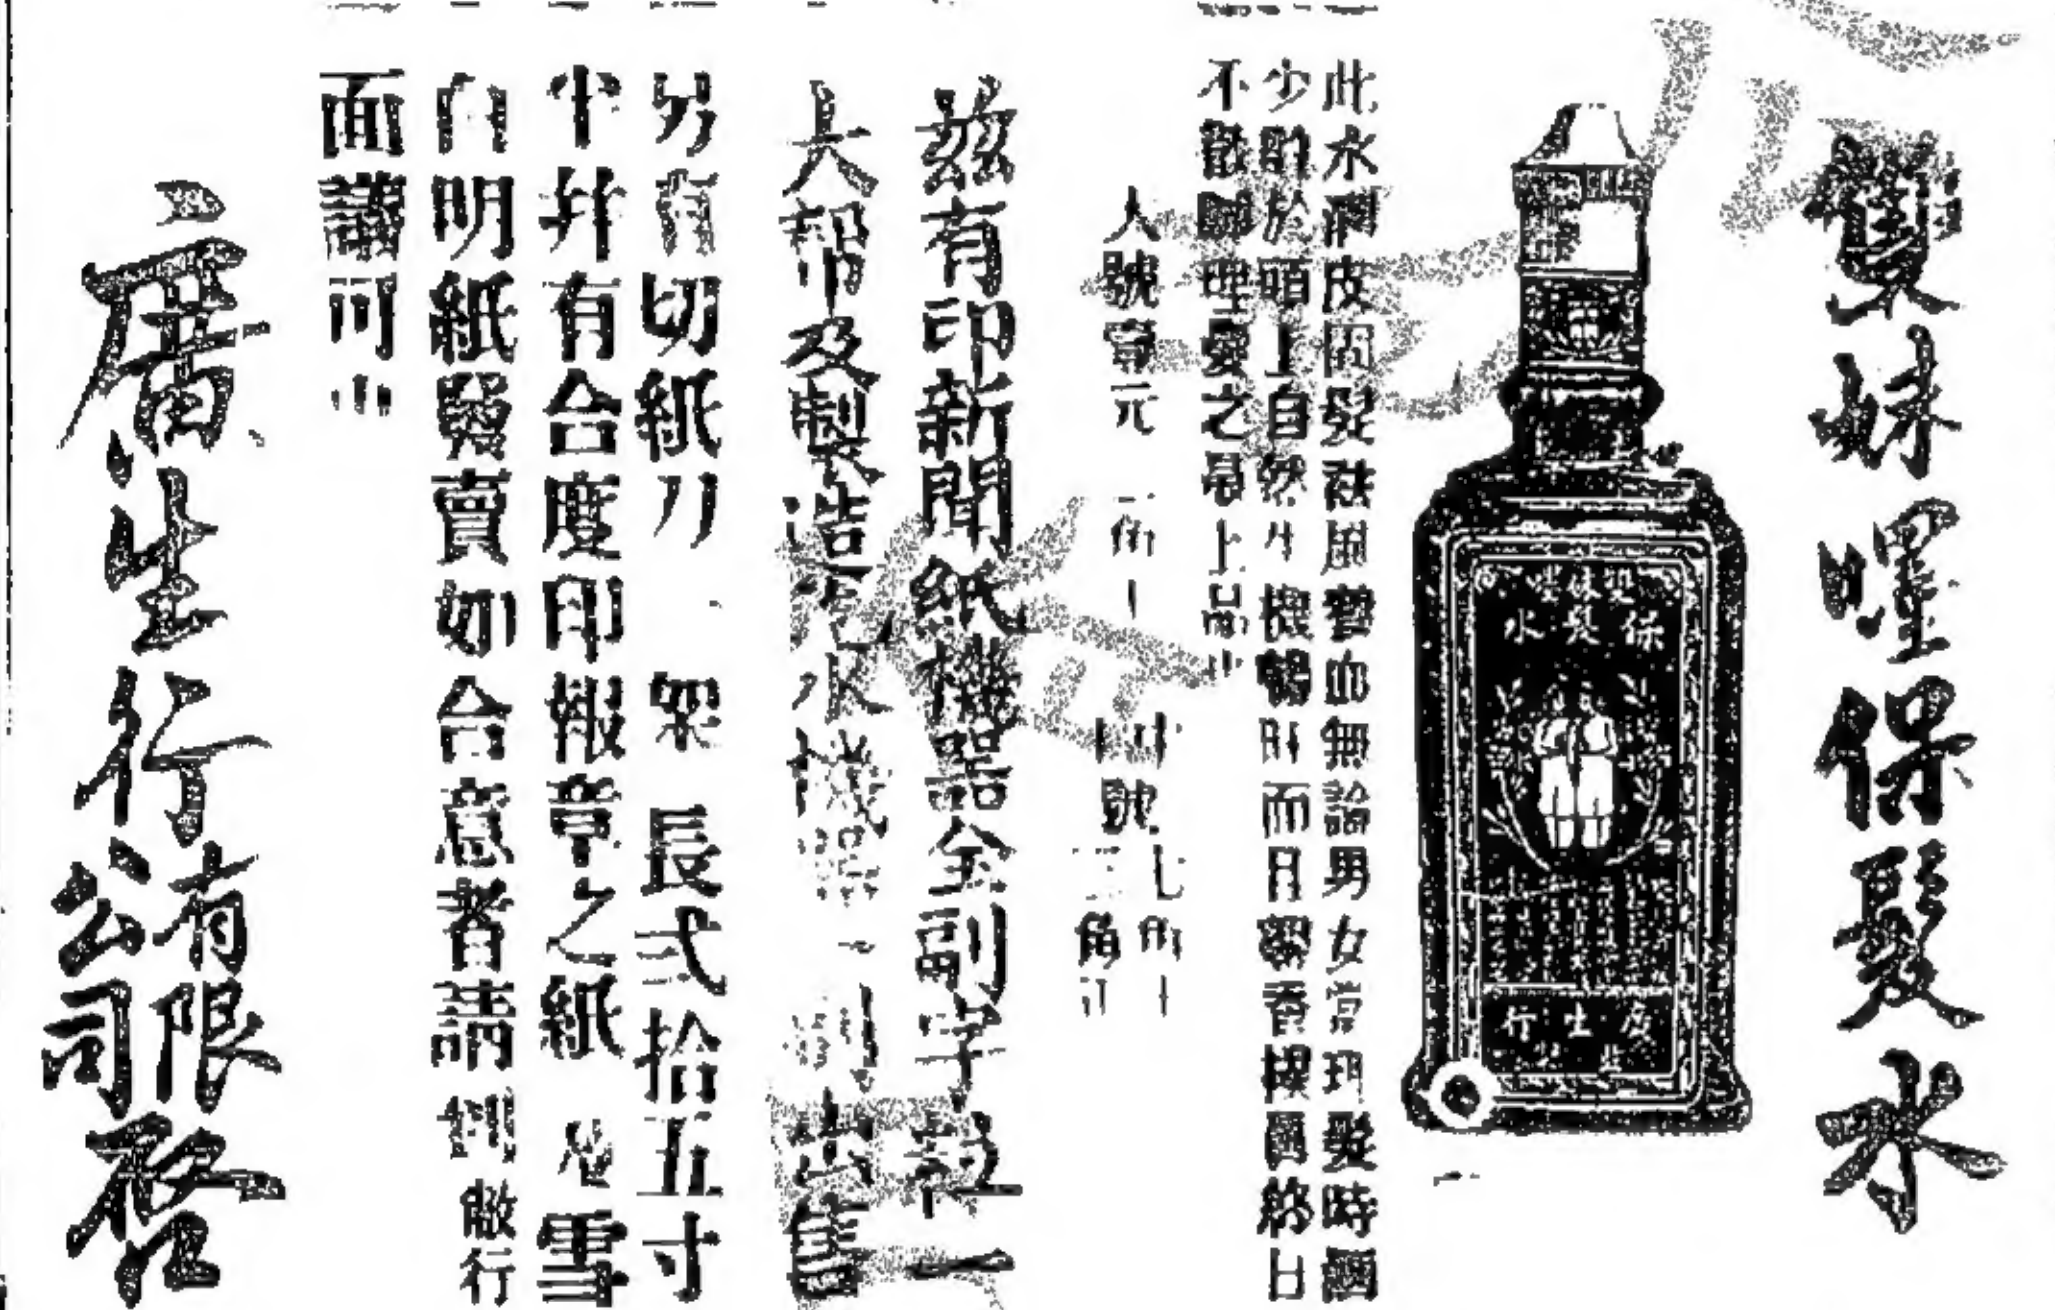 雙妹嘜保髮水
保髮水
廣生行
此水潤皮固髮祛風養血無論男女當理髮時洒
少許於頭上自然生機暢旺而且馨香撲鼻終日
不散歸理愛之最上品也
大號壹元二角
號七角
號三角
茲有印新聞紙機器全副字粒一
大帮及製造汽水機器一副出售
另有切紙刀一架長弍拾五寸
半并有合度印報章之紙雪
白明紙賤賣如合意者請到敝行
面議可也
廣生行有限公司啓